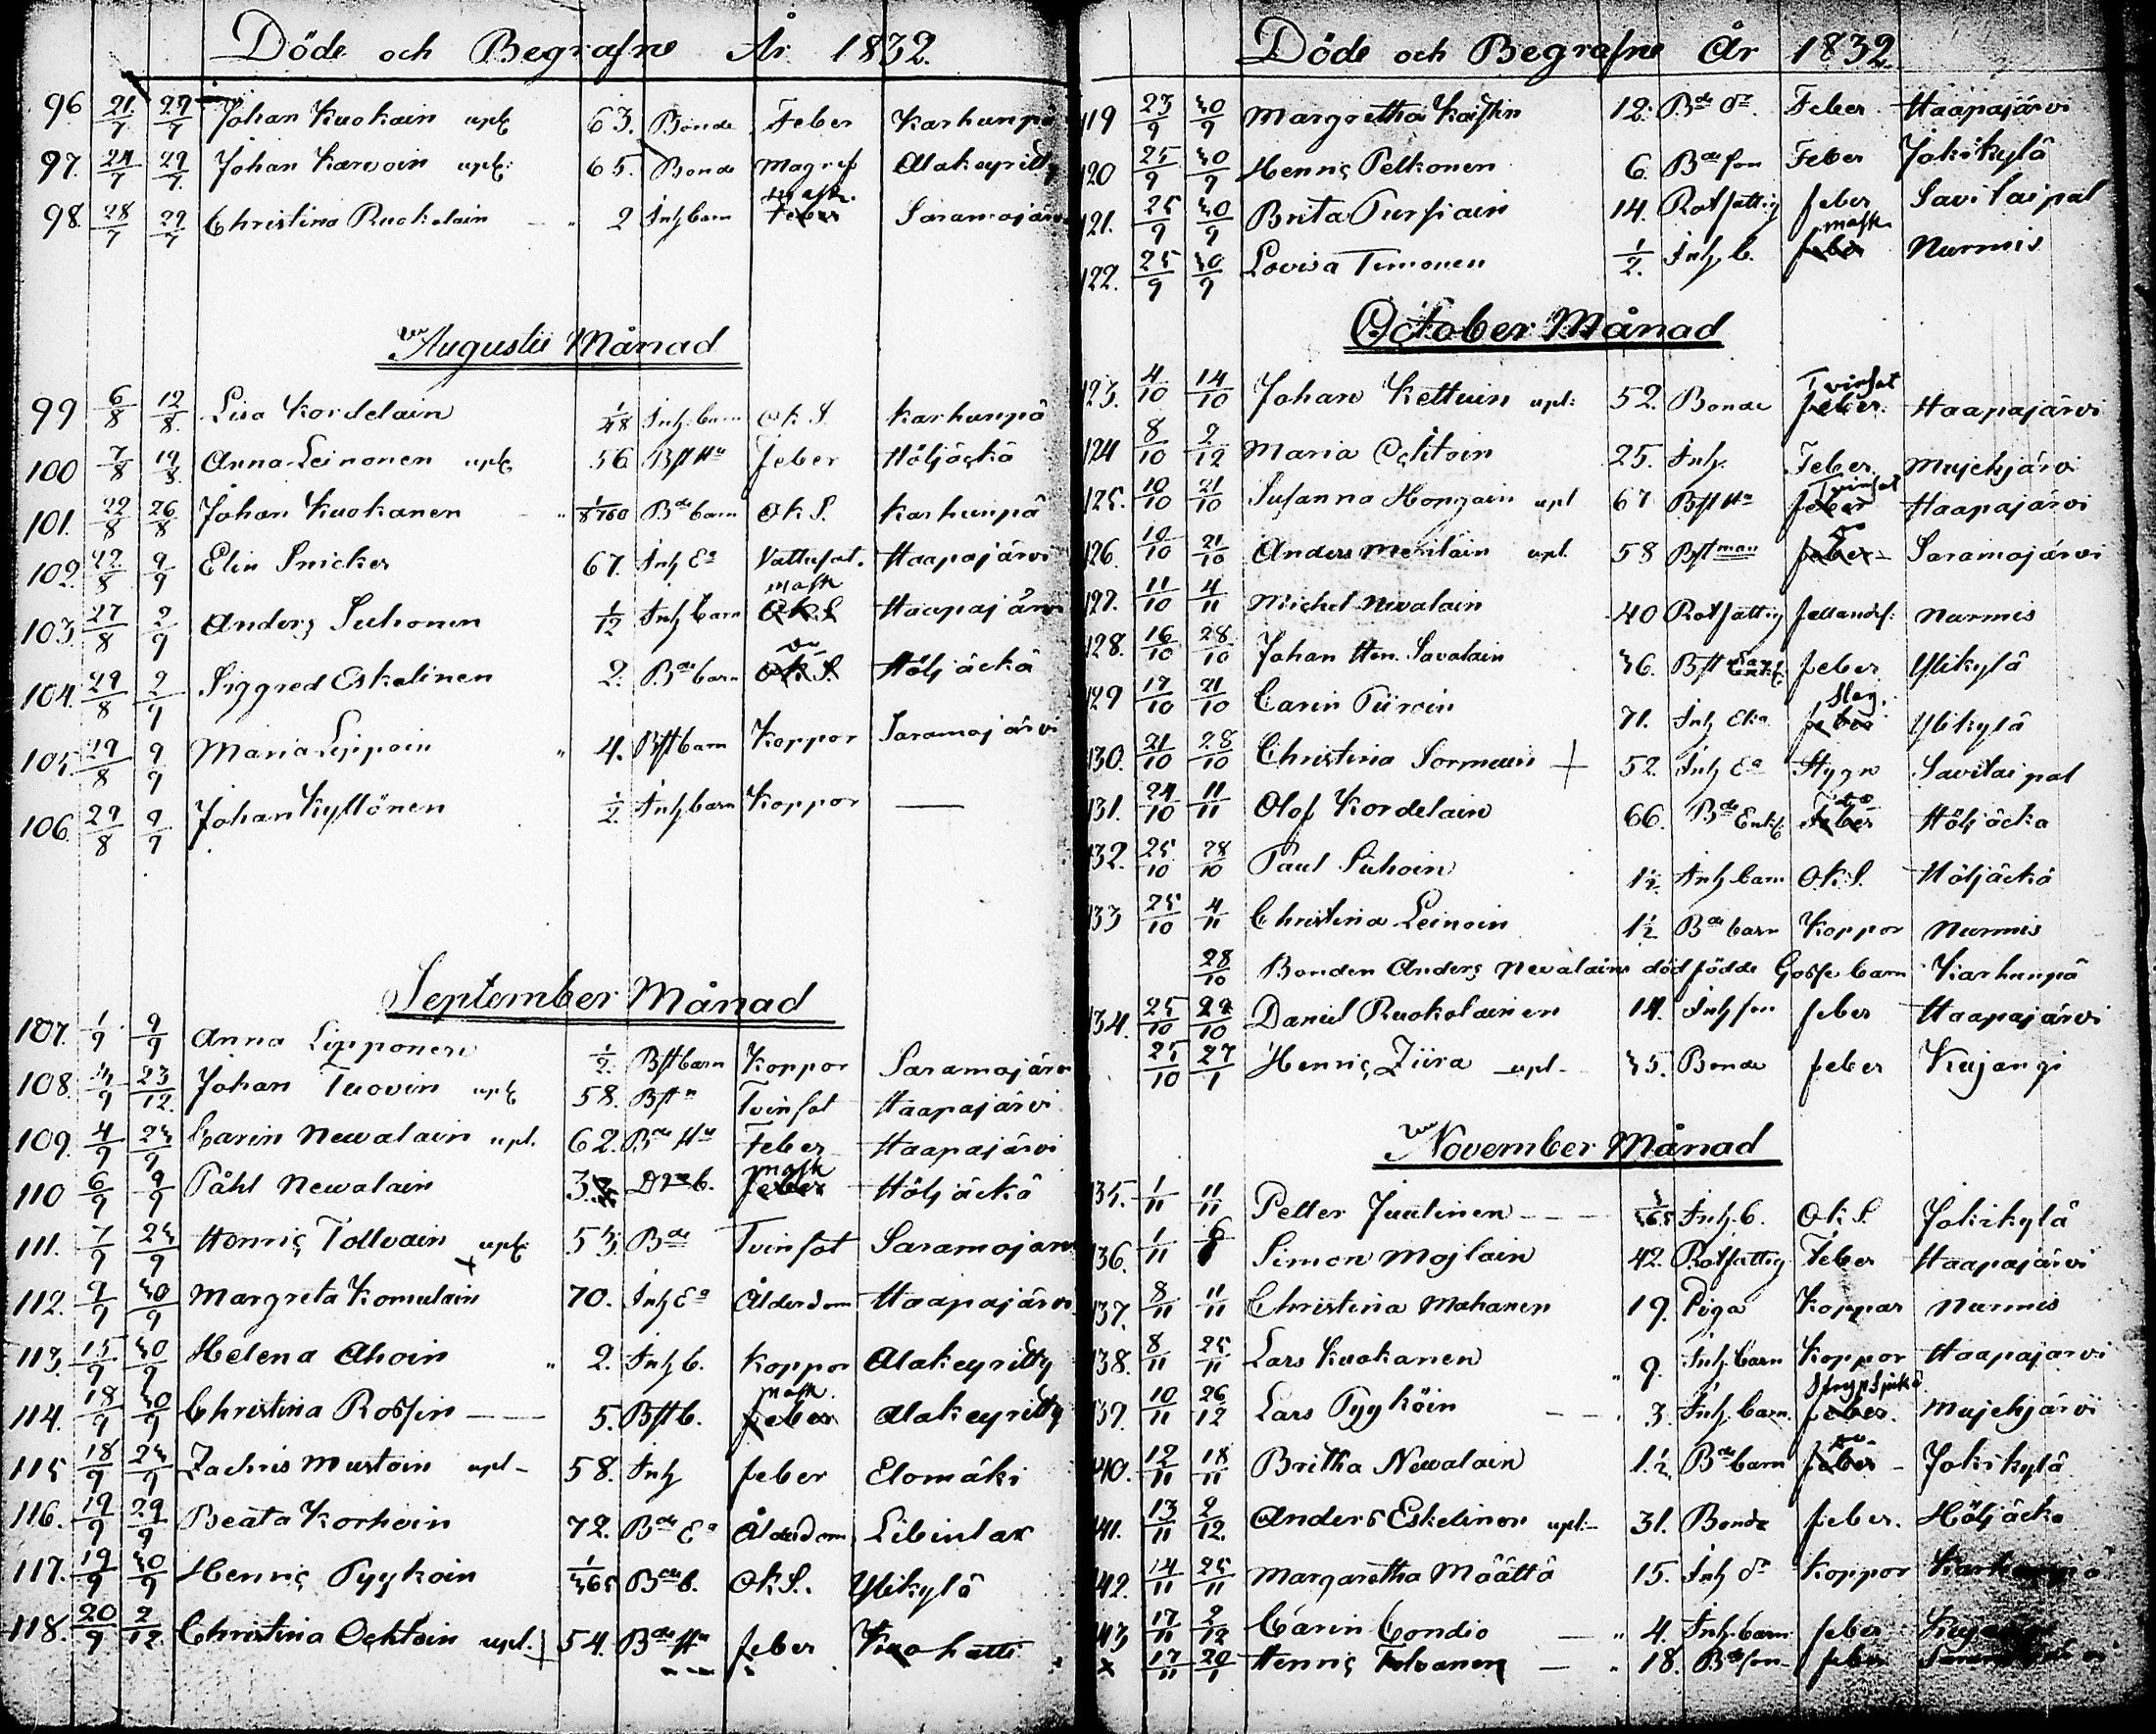 Döde och Begrafne År 1832.
96 21/7 29/7 Johan Kuokain upf 63. Bonde Feber Karhunpä
97. 24/7 29/7. Johan Karvoin upf: 65. Bonde Magref Alakeyritty
mask.
98. 28/7 29/7 Christina Ruokolain " 2 Inh barn Feber Saramojärvi
Augustii Månad
99 6/8 12/8. Lisa Kordelain 1/48 Inh. barn Ok S. Karhunpä
100 7/8 19/8. Anna Leinonen upf 56 Bst Hu feber Höljäckä
101. 22/8 26/8 Johan Kuokanen " Bde barn Ok S. Karhunpä
102. 22/8 9/9 Elin Snicker 67. Inh Ea Vattusot. Haapajärvi
mask
103. 27/8 2/9 Anders Suhonen 1/12 Inh barn Ok S Haapajärvi
do
104. 29/8 2/9 Siggred Eskelinen 2. Bde barn Ok S. Höljäckä
105. 29/8 9/9 Maria Lippoin " 4. Bst barn Koppor Saramojärvi
106. 29/8 9/9 Johan Kyllönen 1/2. Inh barn Koppor —
September Månad
107. 1/9 9/9 Anna Lipponen 1/2. Bst barn Koppor Saramojärvi
108. 3/9 23/12. Johan Tuovin upf 58. Bst n Tvinsot Haapajärvi
109. 4/9 23/9 Carin Newalain upf. 62. Bde Hu Feber Haapajärvi
mask
110 6/9 9/9 Påhl Newalain 3. b. feber Höljäckä
111. 7/9 23/9 Henric Tollvain upf: 53. Bde Tvinsot Saramojärv
112. 9/9 30/9 Margreta Komulain 70. Inh Ea Ålderdom Haapajärvi
113. 15/9 30/9 Helena Ahoin " 2. Inh b. Koppor Alakeyritty
mask.
114. 18/9 30/9 Christina Rossin — — 5. Bst b. feber Alakeyritty
115 18/9 23/9 Zachris Mustoin upf – 58. Inh feber Elomäki
116. 19/9 29/9 Beata Korhoin 72. Bde Ea Ålderdom Libinlax
117. 19/9 30/9 Henric Pyykoin 1/365 Bde b. Ok S. Ylikylä
118. 20/9 2/12 Christina Ochtoin upf. + 54. Bde Hu feber
Döde och Begrafne År 1832.
119 23/9 30/9 Margretha Kaisfin 12. Bde dr. Feber Haapajärvi
120 25/9 30/9 Henric Pelkonen 6. Bde son Feber Jokikylä
121. 25/9 30/9 Brita Tursiain 14. Rotfattig feber Savitaipal
mask
122. 25/9 30/9 Lovisa Timonen 1/2. Inh b. feber Nurmis
October Månad
Tvinsot
123. 4/10 14/10 Johan Kettuin upf: 52. Bonde feber. Haapajärvi
124 8/10 2/12 Maria Ochtoin 25. Inh. Feber. Mujehjärvi
Tvinsot
125. 10/10 21/10 Susanna Hongain upf 67 Bst Hu feber Haapajärvi
do
126. 10/10 21/10 Anders Meriläin upf. 58 Bst man feber – Saramojärvi
127. 11/10 4/11 Michel Newalain 40 Rotfattig fallands: Nurmis
128. 16/10 28/10 Johan Hen. Savolain 36. Bst feber Ylikylä
Slag.
129 17/10 21/10 Carin Piiroin 71. Inh Eka feber Ylikylä
130. 21/10 28/10 Christina Sormuin + 52. Inh Ea Stygn Savitaipal
do
131. 24/10 11/11 Olof Kordelain 66. Bde Enkl Feber Höljäcka
132. 25/10 28/10 Paul Suhoin 1½. Inh barn Ok S. Höljäckä
133 25/10 4/11 Christina Leinoin 1½ Bde barn Koppor Nurmis
28/10 Bonden Anders Nevalains dödfödde Gosse barn Karhunpä
134. 25/10 29/10 Daniel Ruokolainen 14. Inh son feber Haapajärvi
25/10 27/1 Henric Ziira upf. 35. Bonde feber Kajangi
November Månad
135. 1/11 11/11 Petter Juutinen – – 3/365 Inh. b. Ok S. Jokikylä
136. 1/11 Simon Mojlain 42. Rotfattig Feber Haapajärvi
137. 8/11 11/11 Christina Mahanen 19. Piga Koppar Nurmis
138. 8/11 25/11 Lars Kuokanen " 9. Inh. barn Koppor Haapajärvi
Strypsjuka
139. 10/11 26/12 Lars Pyyköin – – " 3. Inh. barn. feber. Mujehjärvi
do
140. 12/11 18/11 Britha Newalain 1½ Bde barn feber – Jokikylä
141. 13/11 2/12. Anders Eskelinen upf:– 31. Bonde feber. Höljäckä
142. 14/11 25/11 Margaretha Määttä 15. Inh dr Koppor Karhunpä
143 17/11 2/12 Carin Condio – " 4. Inh. barn feber
x 17/11 20/1 Henric Tolvanen – " 18. Bde son – feber